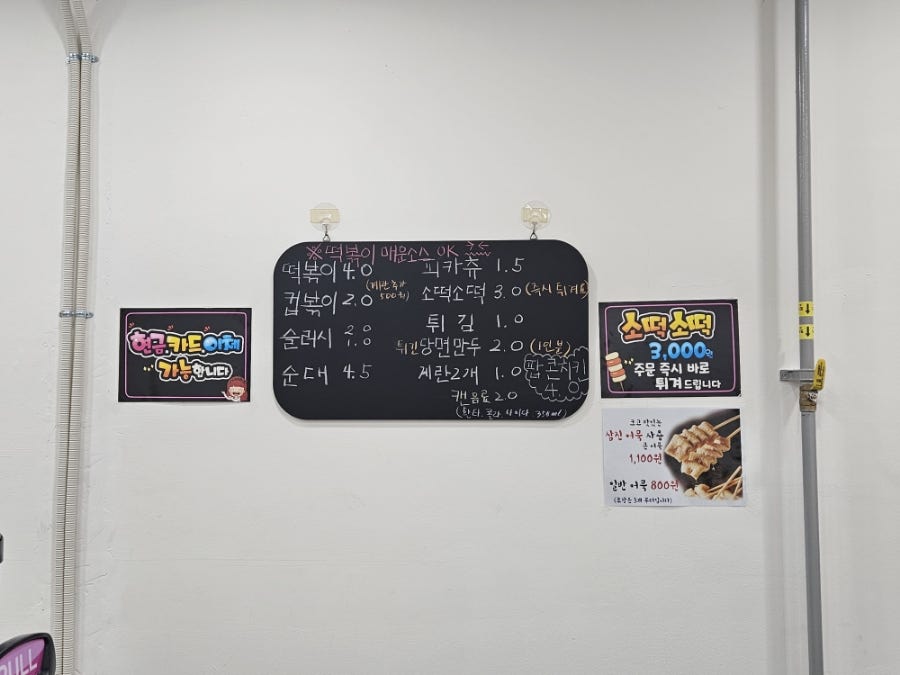 현금,카드,이체
가능합니다
※떡볶이 매운소스 OK
떡볶이 4.0
(계란추가
500원)
컵볶이 2.0
슬러시 2.0
1.0
순대 4.5
피카츄 1.5
소떡소떡 3.0 (즉시 튀겨요)
튀김 1.0
튀긴당면만두 2.0 (1인분)
계란2개 1.0
팝콘치킨
4.0
캔음료 2.0
(환타, 콜라, 사이다 355ml)
소떡소떡
3,000원
주문 즉시 바로
튀겨드립니다
크고 맛있는
삼진어묵 사용
큰 어묵
1,100원
일반 어묵 800원
PULL